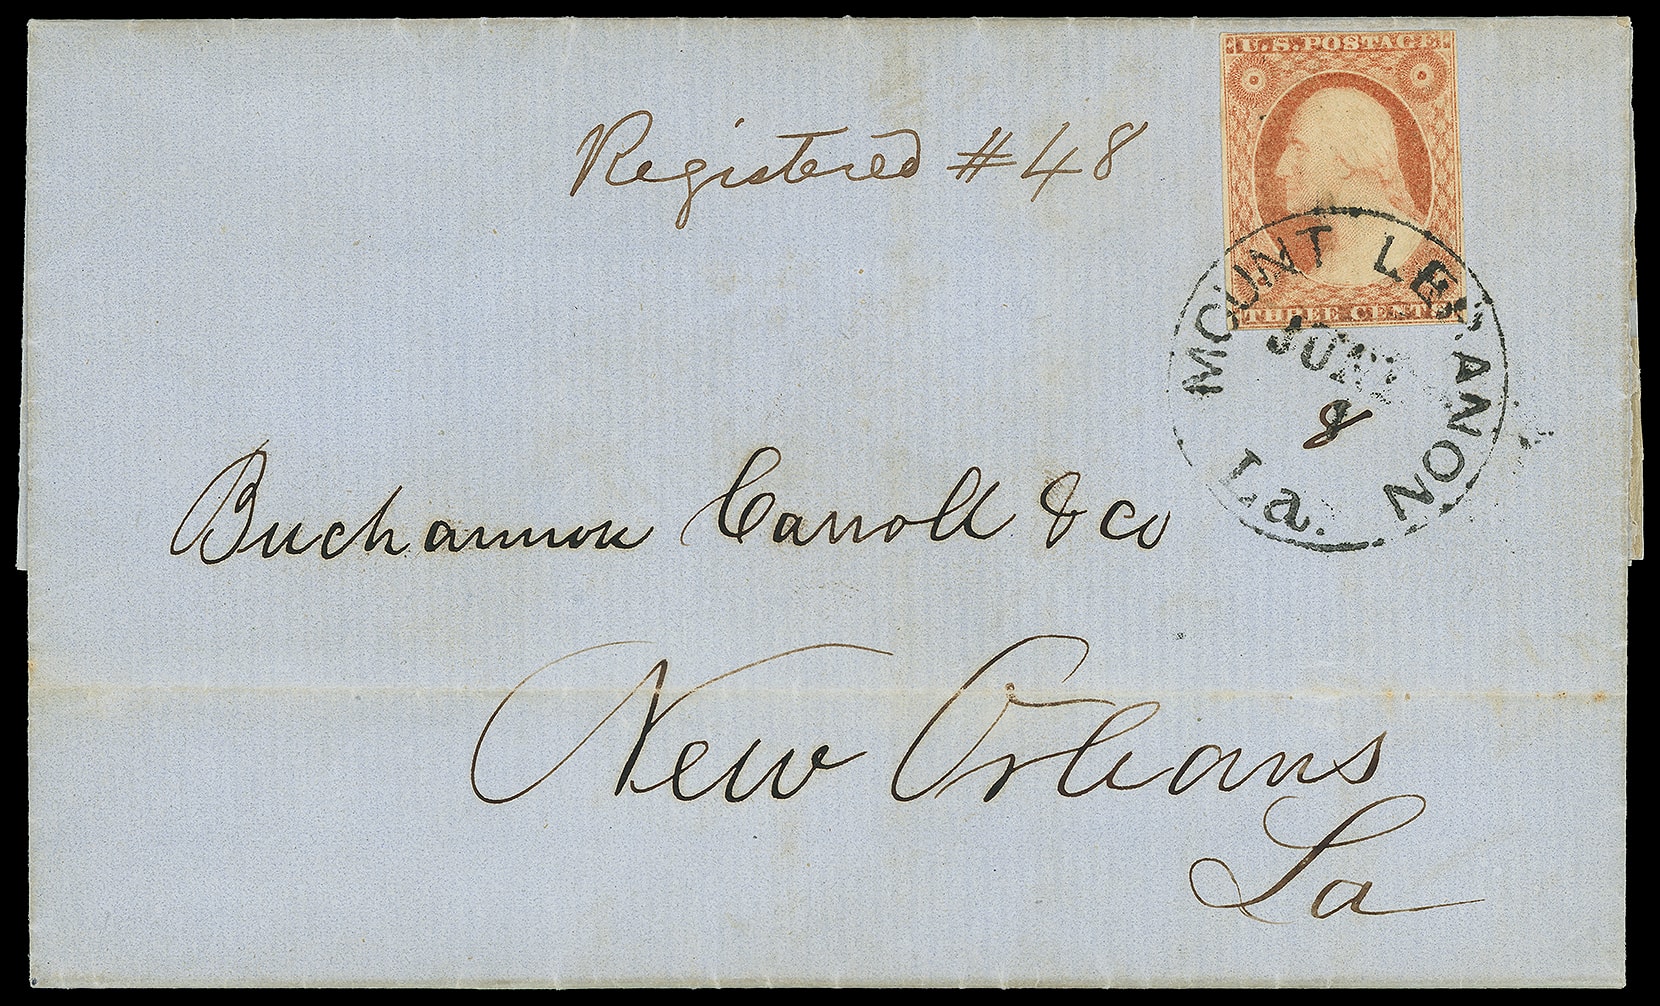 U.S. POSTAGE
THREE CENTS
Registered #48
MOUNT LEBANON
JUN
8
La.
Buchannon Carroll & Co
New Orleans
La